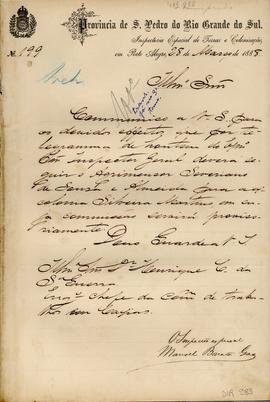 Provincia de S. Pedro do Rio Grande do Sul.
Inspectoria Especial de Terras e Colonisação,
Nº 199 em Porto Alegre, 28 de Março de 1888
Illmº Snr
Communico a V. S. para
os devidos effeitos que por te
legramma de hontem do Illmº
Snr Inspector Geral deverá se
guir o Agrimensor Severiano
de Souza e Almeida para a ex
colonia Silveira Martins, em cu
ja commissão servirá proviso
riamente
Deus Guarde a V. S.
Illmº Snr Dr Henrique C. da
Sª Guerra
Engº Chefe da Com de traba
lhos em
O Inspector especial
Manoel Barata Góes
DIR 283